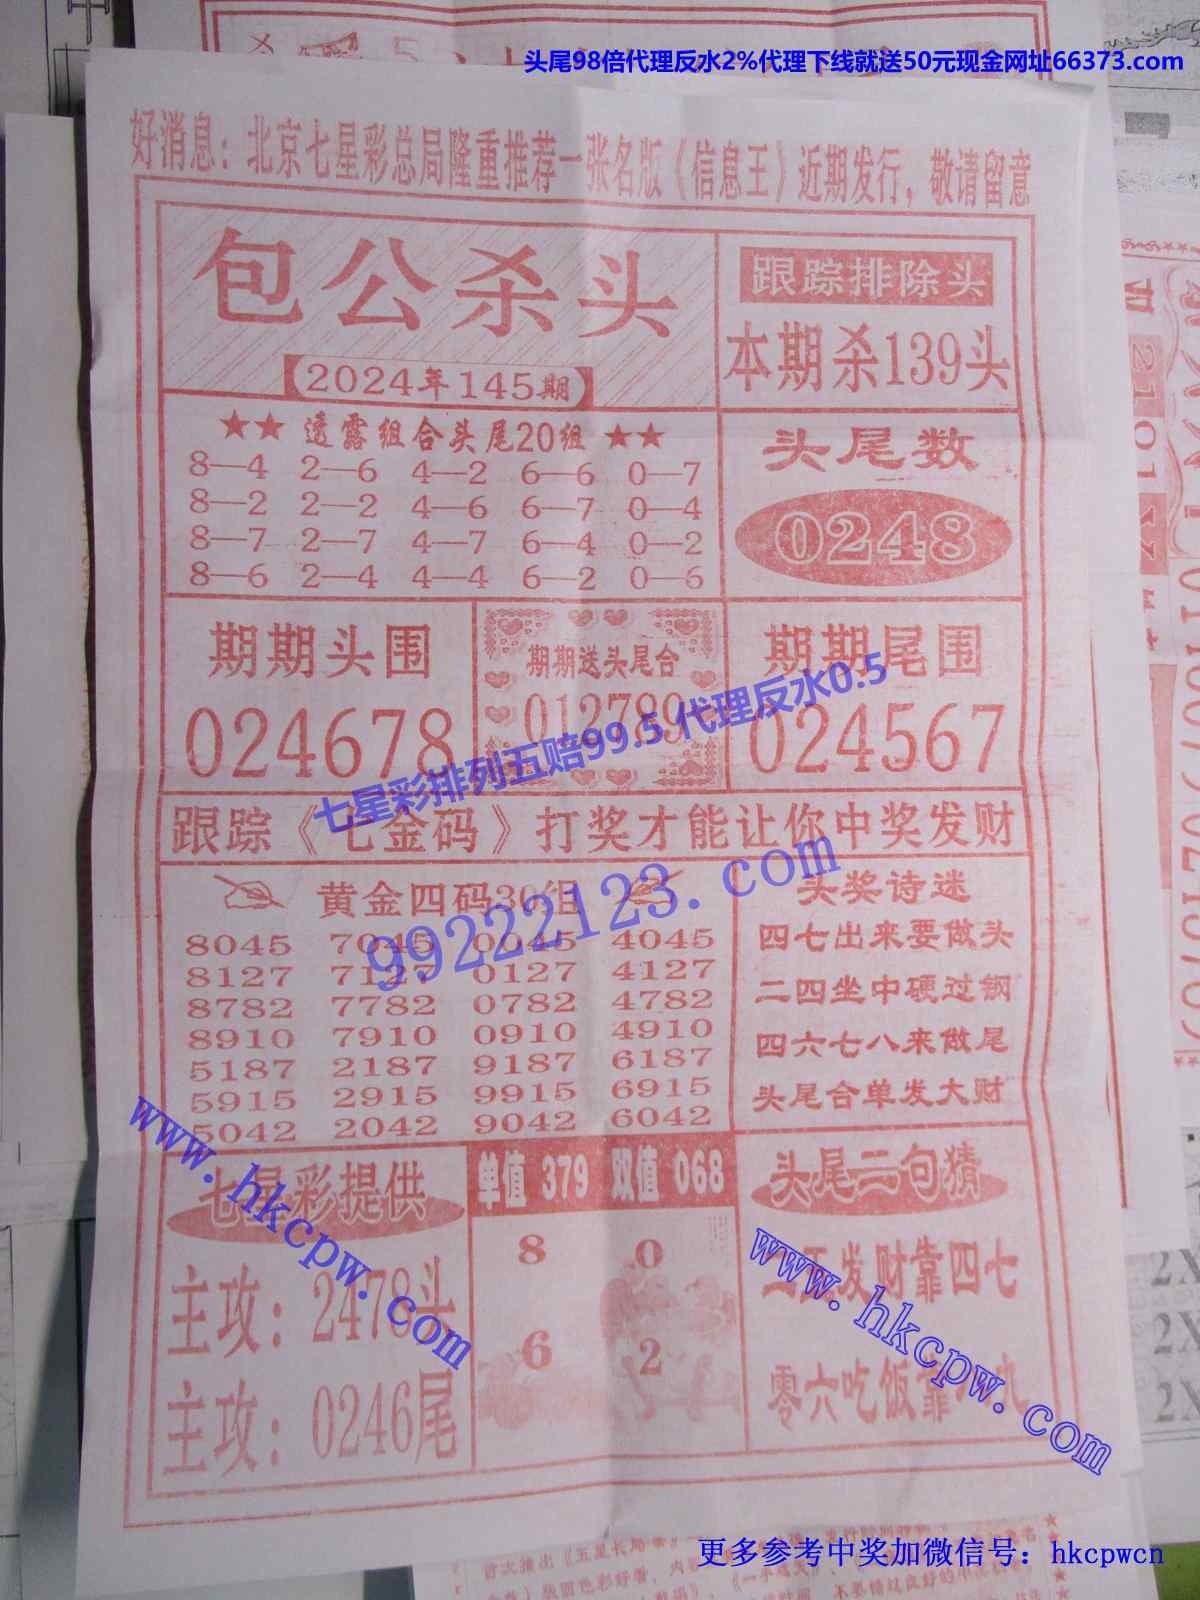 头尾98倍代理反水2%代理下线就送50元现金网址66373.com
好消息：北京七星彩总局隆重推荐一张名版《信息王》近期发行，敬请留意
包公杀头
【2024年145期】
跟踪排除头
本期杀139头
★★ 透露组合头尾20组 ★★
8—4 2—6 4—2 6—6 0—7
8—2 2—2 4—6 6—7 0—4
8—7 2—7 4—7 6—4 0—2
8—6 2—4 4—4 6—2 0—6
头尾数
0248
期期头围
024678
期期送头尾合
012789
期期尾围
024567
七星彩排列五赔99.5 代理反水0.5
跟踪《七金码》打奖才能让你中奖发财
99222123.com
黄金四码30组
8045 7045 0045 4045
8127 7127 0127 4127
8782 7782 0782 4782
8910 7910 0910 4910
5187 2187 9187 6187
5915 2915 9915 6915
5042 2042 9042 6042
头奖诗迷
四七出来要做头
二四坐中硬过钢
四六七八来做尾
头尾合单发大财
七星彩提供
主攻：2478头
主攻：0246尾
www.hkcpw.com
单值 379 双值 068
8 0
6 2
头尾二句猜
二五发财靠四七
零六吃饭靠
www.hkcpw.com
更多参考中奖加微信号：hkcpwcn